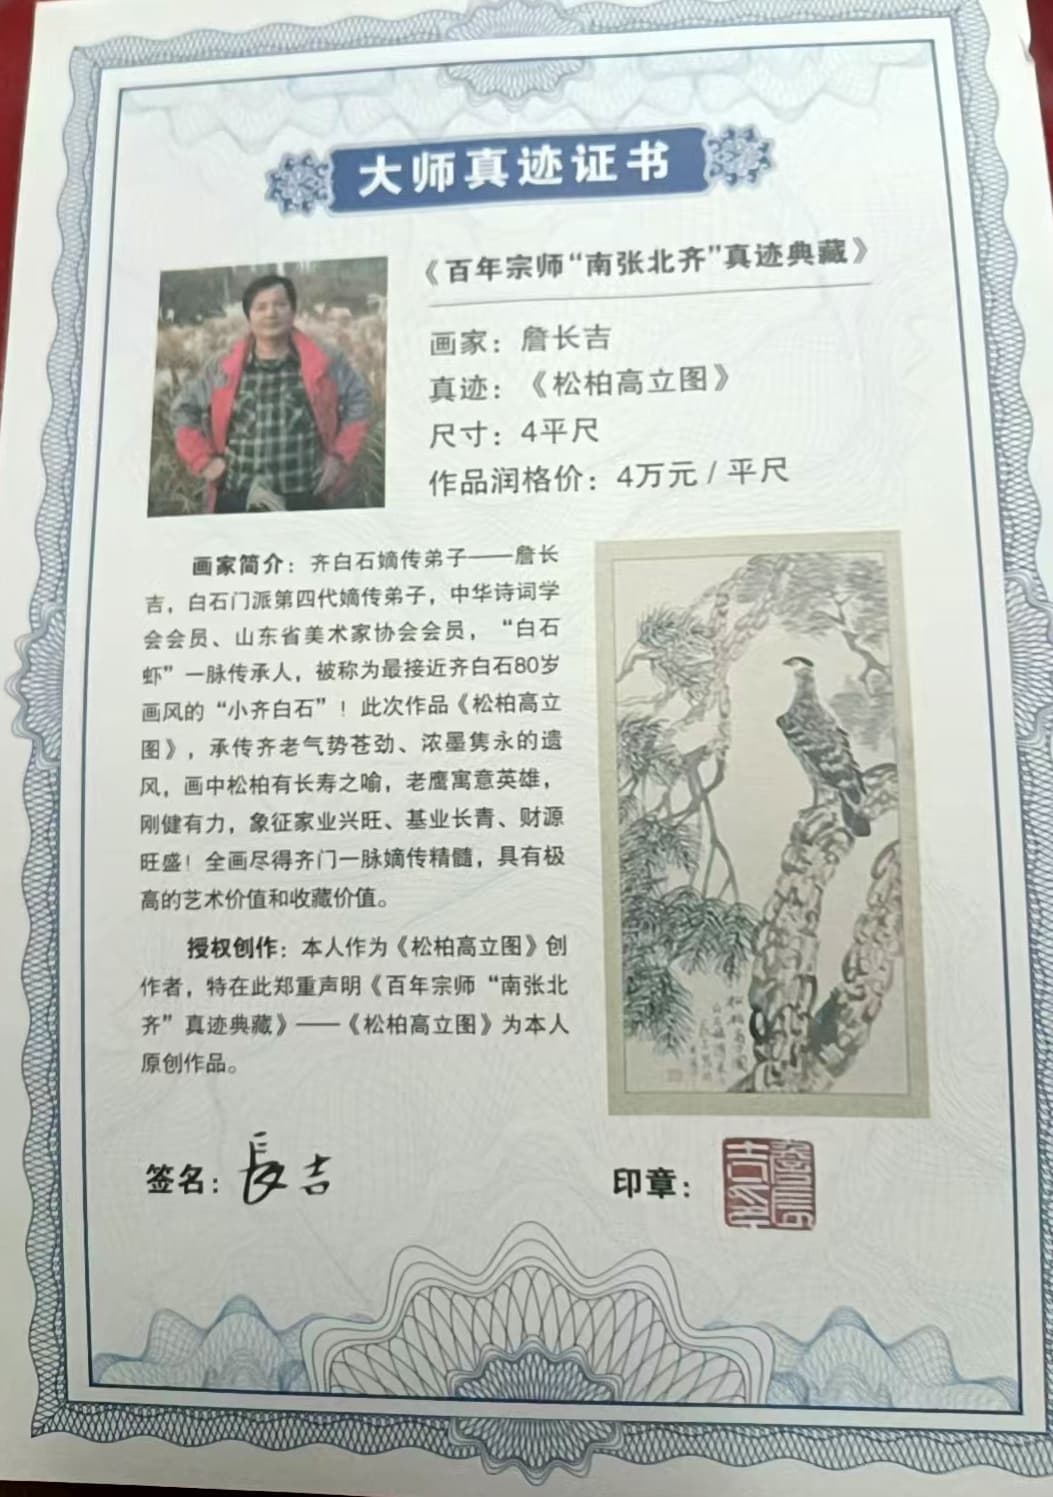 大师真迹证书
《百年宗师“南张北齐”真迹典藏》
画家：詹长吉
真迹：《松柏高立图》
尺寸：4平尺
作品润格价：4万元 / 平尺
画家简介：齐白石嫡传弟子——詹长
吉，白石门派第四代嫡传弟子，中华诗词学
会会员、山东省美术家协会会员，“白石
虾”一脉传承人，被称为最接近齐白石80岁
画风的“小齐白石”！此次作品《松柏高立
图》，承传齐老气势苍劲、浓墨隽永的遗
风，画中松柏有长寿之喻，老鹰寓意英雄，
刚健有力，象征家业兴旺、基业长青、财源
旺盛！全画尽得齐门一脉嫡传精髓，具有极
高的艺术价值和收藏价值。
授权创作：本人作为《松柏高立图》创
作者，特在此郑重声明《百年宗师“南张北
齐”真迹典藏》——《松柏高立图》为本人
原创作品。
签名：長吉
印章：